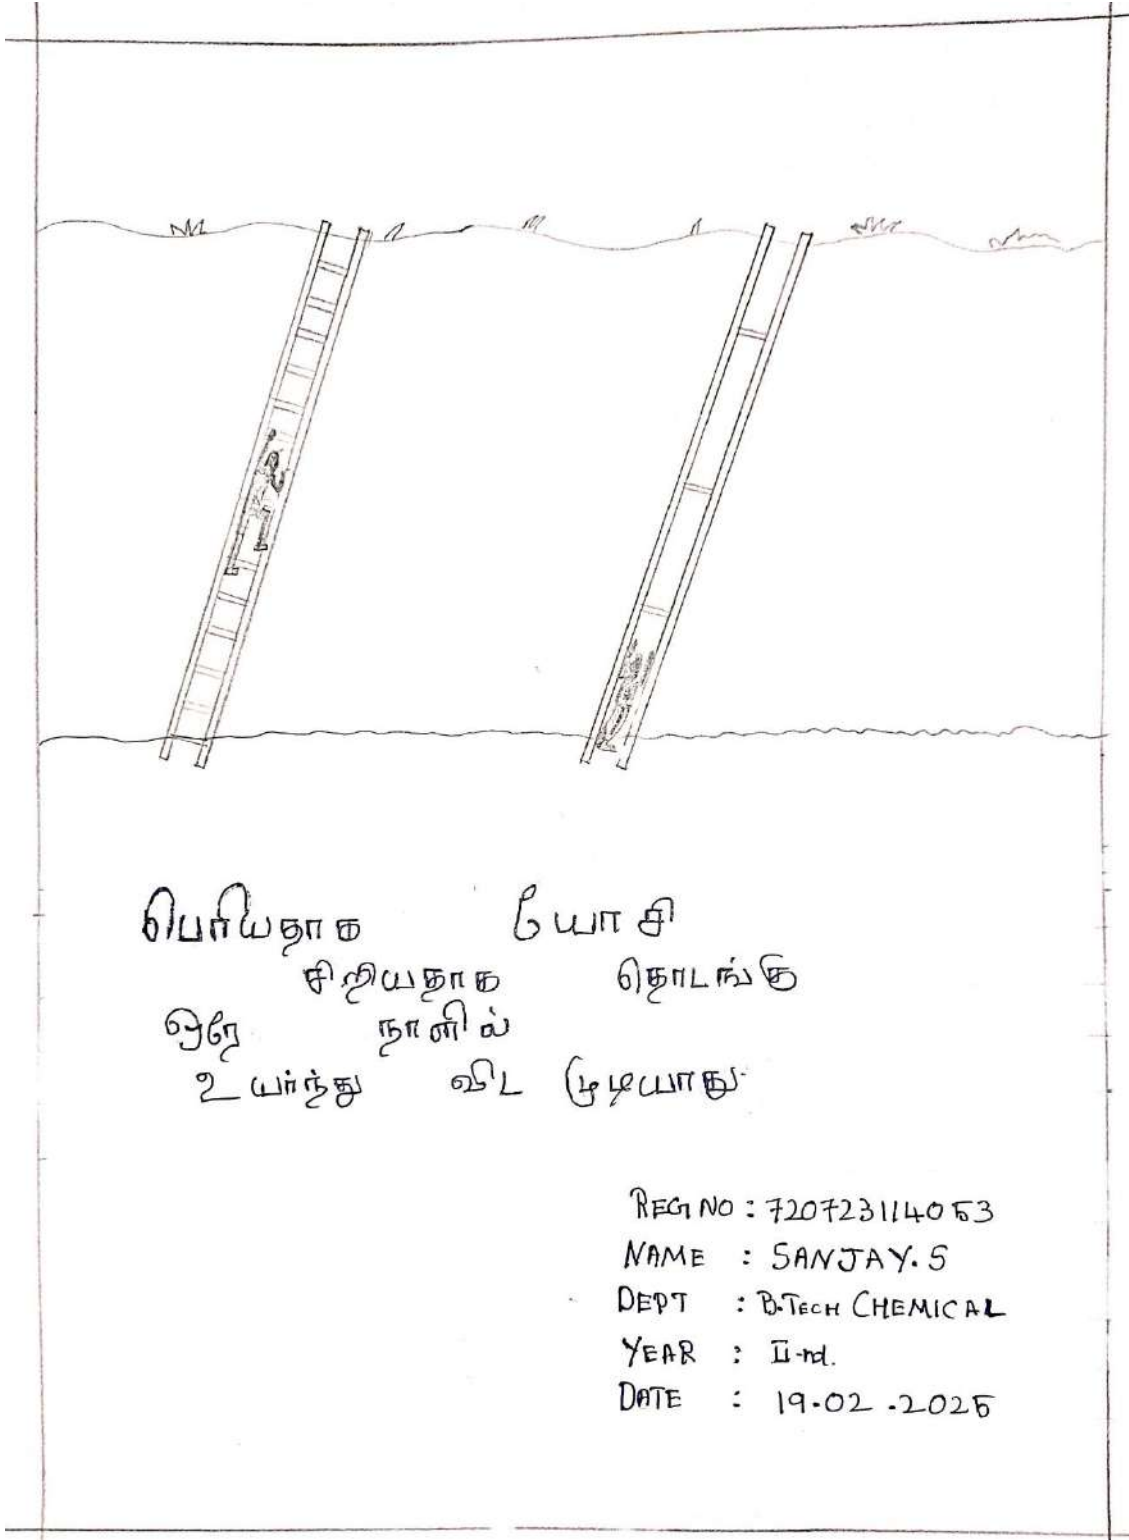 பெரியதாக யோசி
சிறியதாக தொடங்கு
ஒரே நாளில்
உயர்ந்து விட முடியாது.
REG NO : 720723114053
NAME : SANJAY. S
DEPT : B.TECH CHEMICAL
YEAR : II-nd.
DATE : 19.02.2025